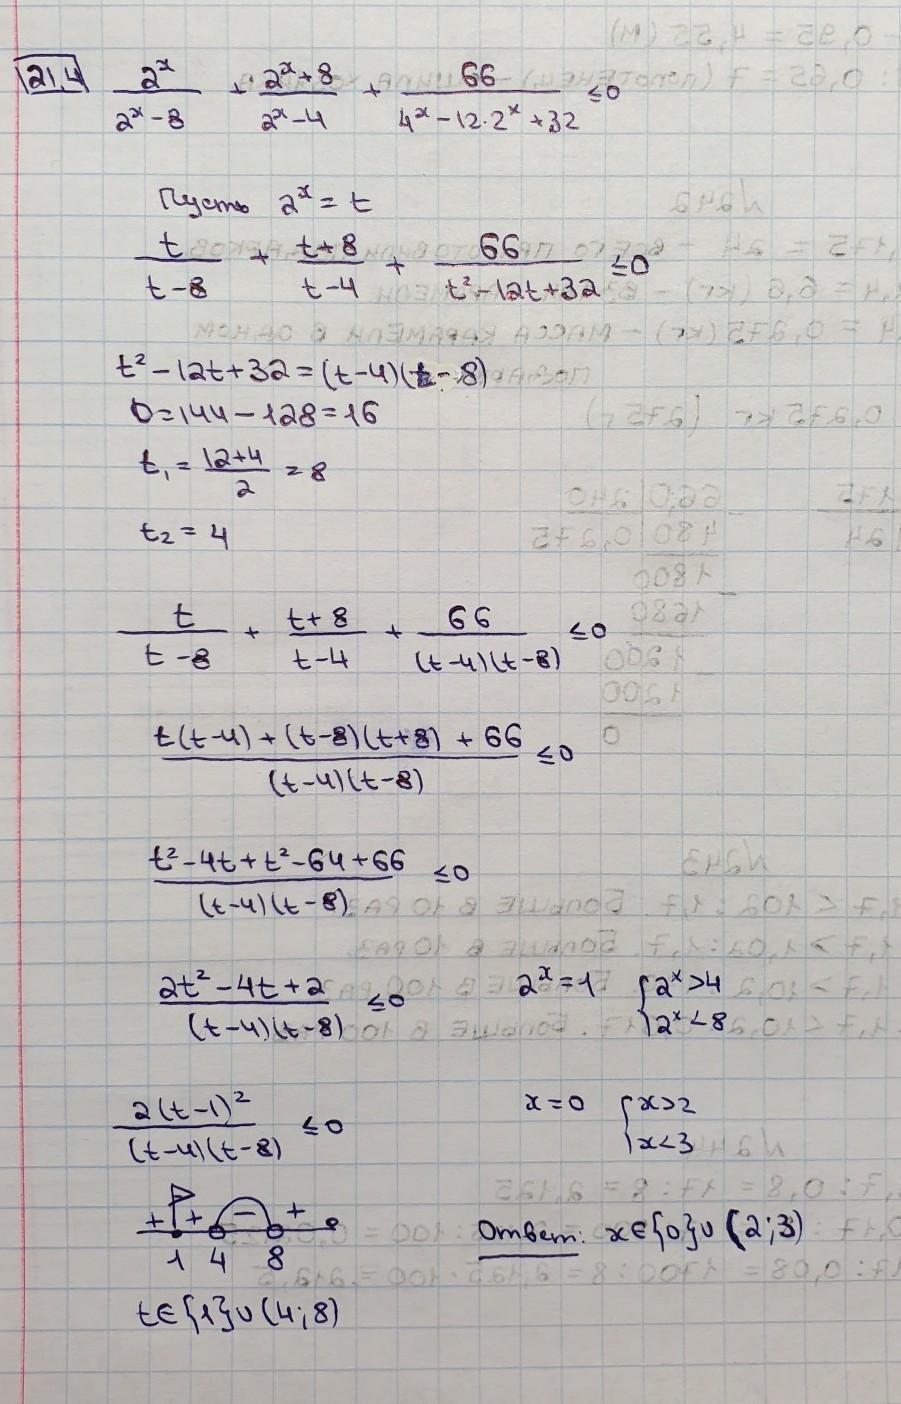 21.4 2^x/(2^x-8) + (2^x+8)/(2^x-4) + 66/(4^x-12·2^x+32) ≤0
Пусть 2^x = t
t/(t-8) + (t+8)/(t-4) + 66/(t²-12t+32) ≤0
t²-12t+32=(t-4)(t-8)
D=144-128=16
t₁ = (12+4)/2 = 8
t₂ = 4
t/(t-8) + (t+8)/(t-4) + 66/((t-4)(t-8)) ≤0
(t(t-4)+(t-8)(t+8)+66)/((t-4)(t-8)) ≤0
(t²-4t+t²-64+66)/((t-4)(t-8)) ≤0
(2t²-4t+2)/((t-4)(t-8)) ≤0
2(t-1)²/((t-4)(t-8)) ≤0
+ + − +
1 4 8
t∈{1}∪(4;8)
2^x=1 {2^x>4
2^x<8
x=0 {x>2
x<3
Ответ: x∈{0}∪(2;3)